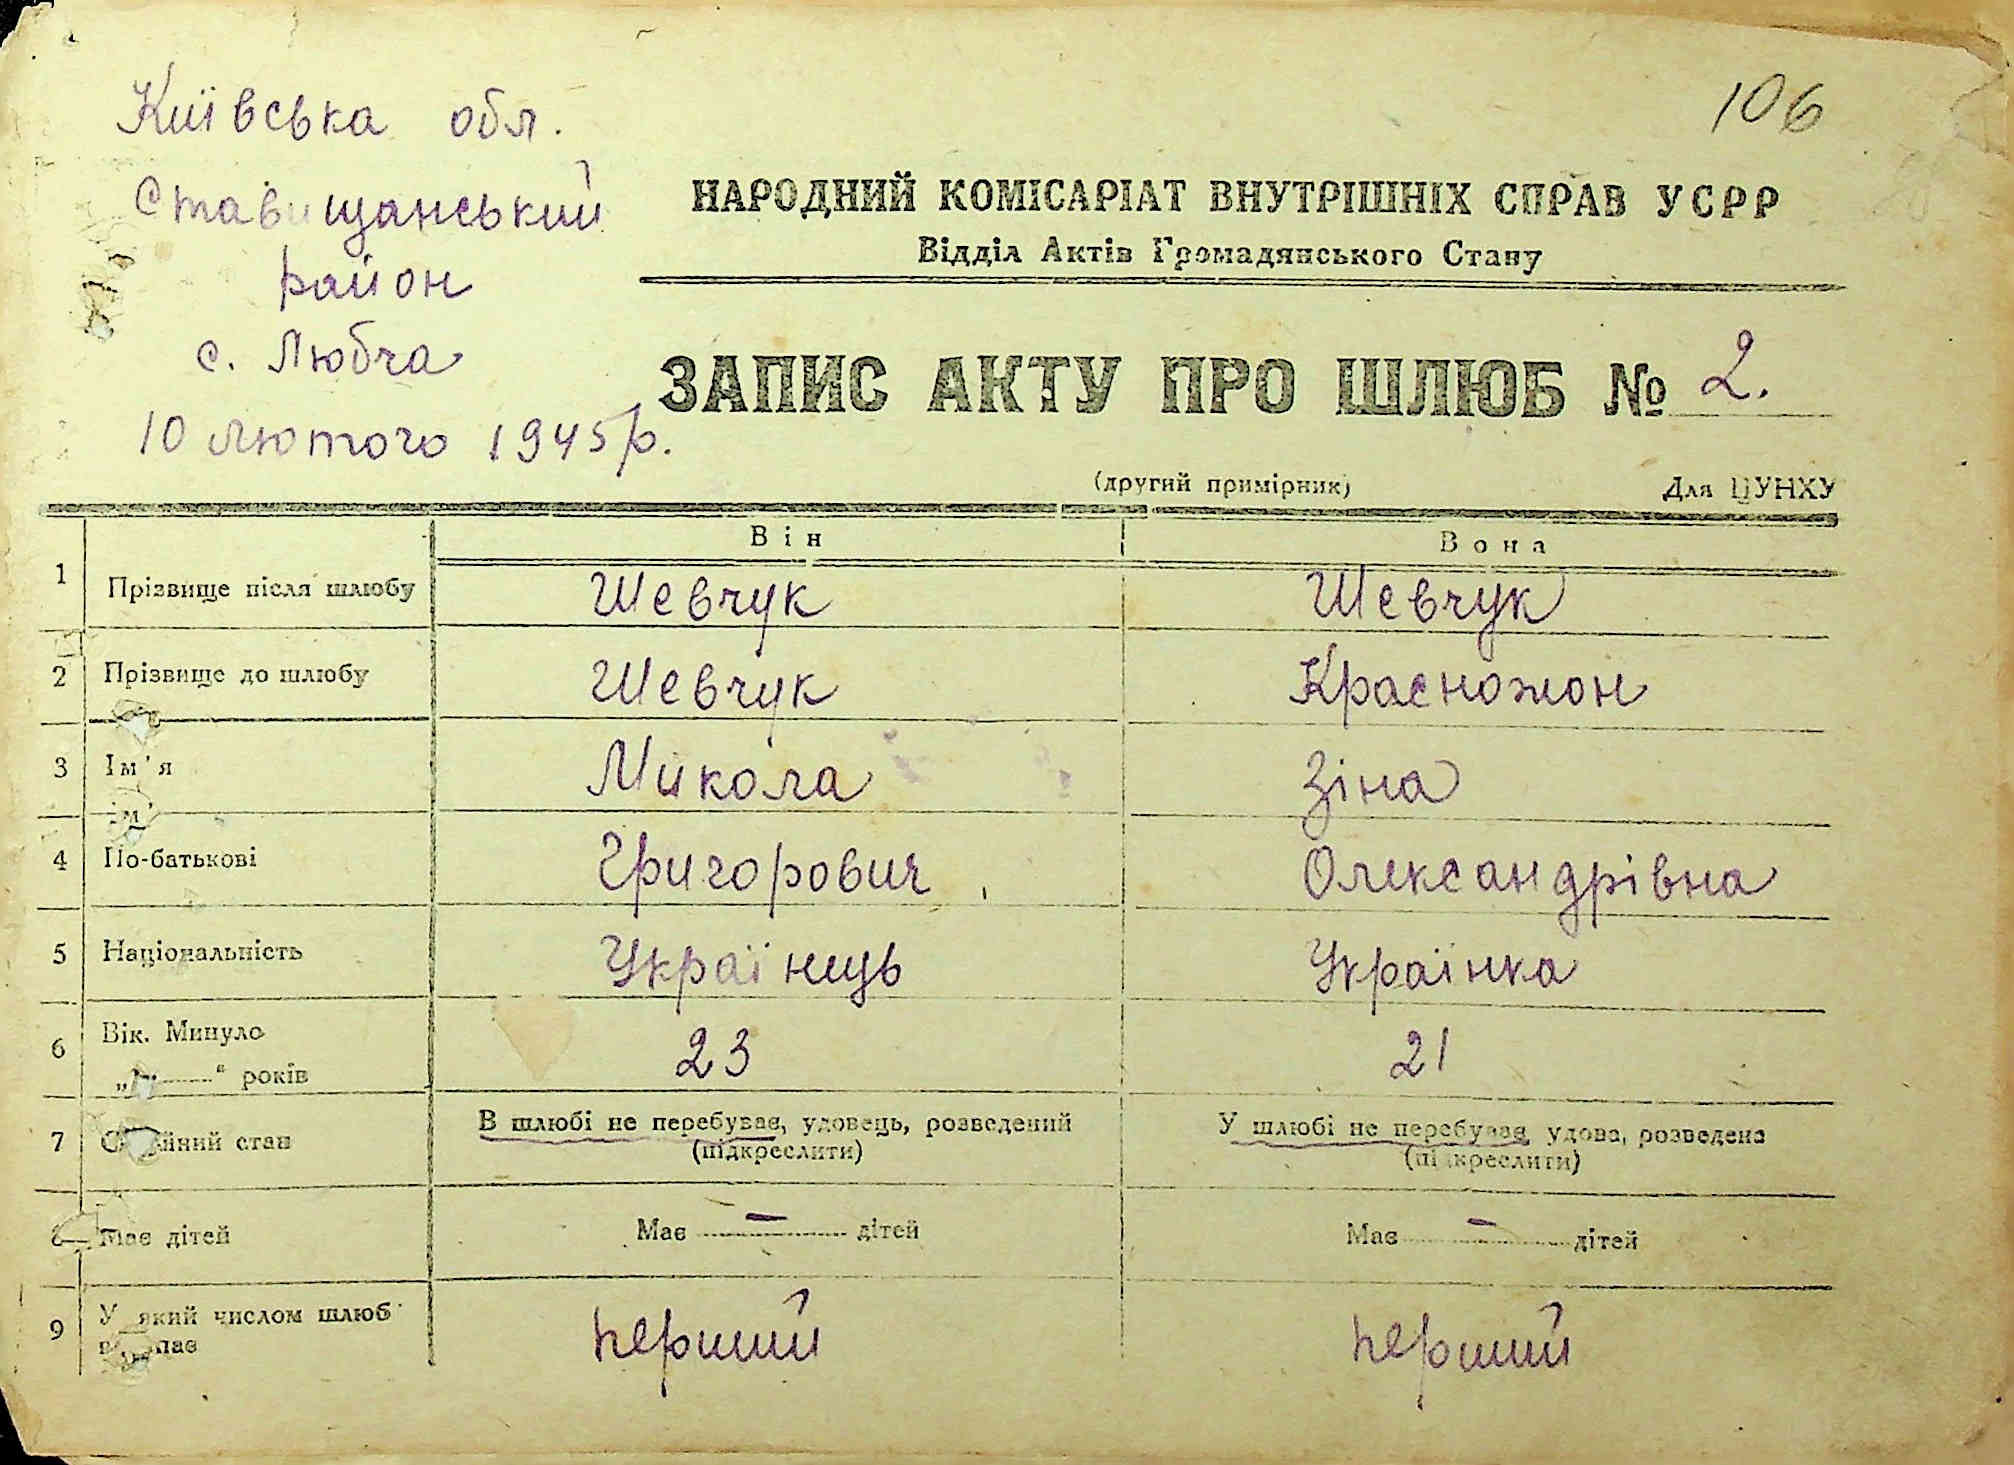 106
Київська обл.
Ставищанський
район
с. Любча
10 лютого 1945 р.
НАРОДНИЙ КОМІСАРІАТ ВНУТРІШНІХ СПРАВ УСРР
Відділ Актів Громадянського Стану
ЗАПИС АКТУ ПРО ШЛЮБ № 2.
(другий примірник) Для ЦУНХУ
Він Вона
1 Прізвище після шлюбу Шевчук Шевчук
2 Прізвище до шлюбу Шевчук Красножон
3 Ім'я Микола Зіна
4 По-батькові Григорович Олександрівна
5 Національність Українець Українка
6 Вік. Минуло 23 21
років
7 стан В шлюбі не перебуває, удовець, розведений У шлюбі не перебуває, удова, розведена
(підкреслити) (підкреслити)
8 Має дітей Має – дітей Має – дітей
9 У який числом шлюб перший перший